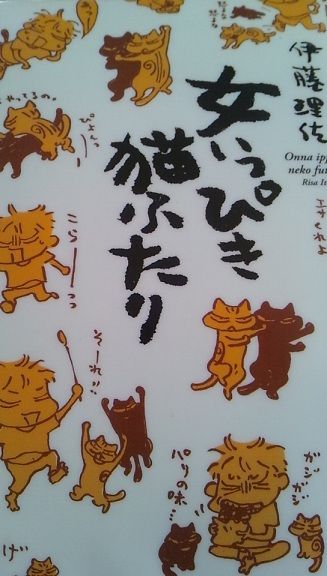 伊藤理佐
女いっぴき
猫ふたり
Onna ipp
neko fut
Risa It
エサくれよ
ぴょんっ
こらーーっ
そーれっ!!
ガシガシ
パリの味…
げ